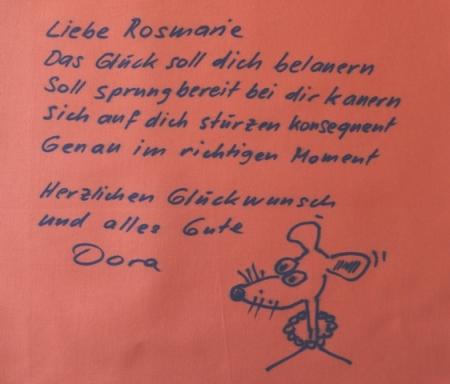 Liebe Rosmarie
Das Glück soll dich belauern
Soll sprungbereit bei dir kauern
Sich auf dich stürzen konsequent
Genau im richtigen Moment
Herzlichen Glückwunsch
und alles Gute
Dora